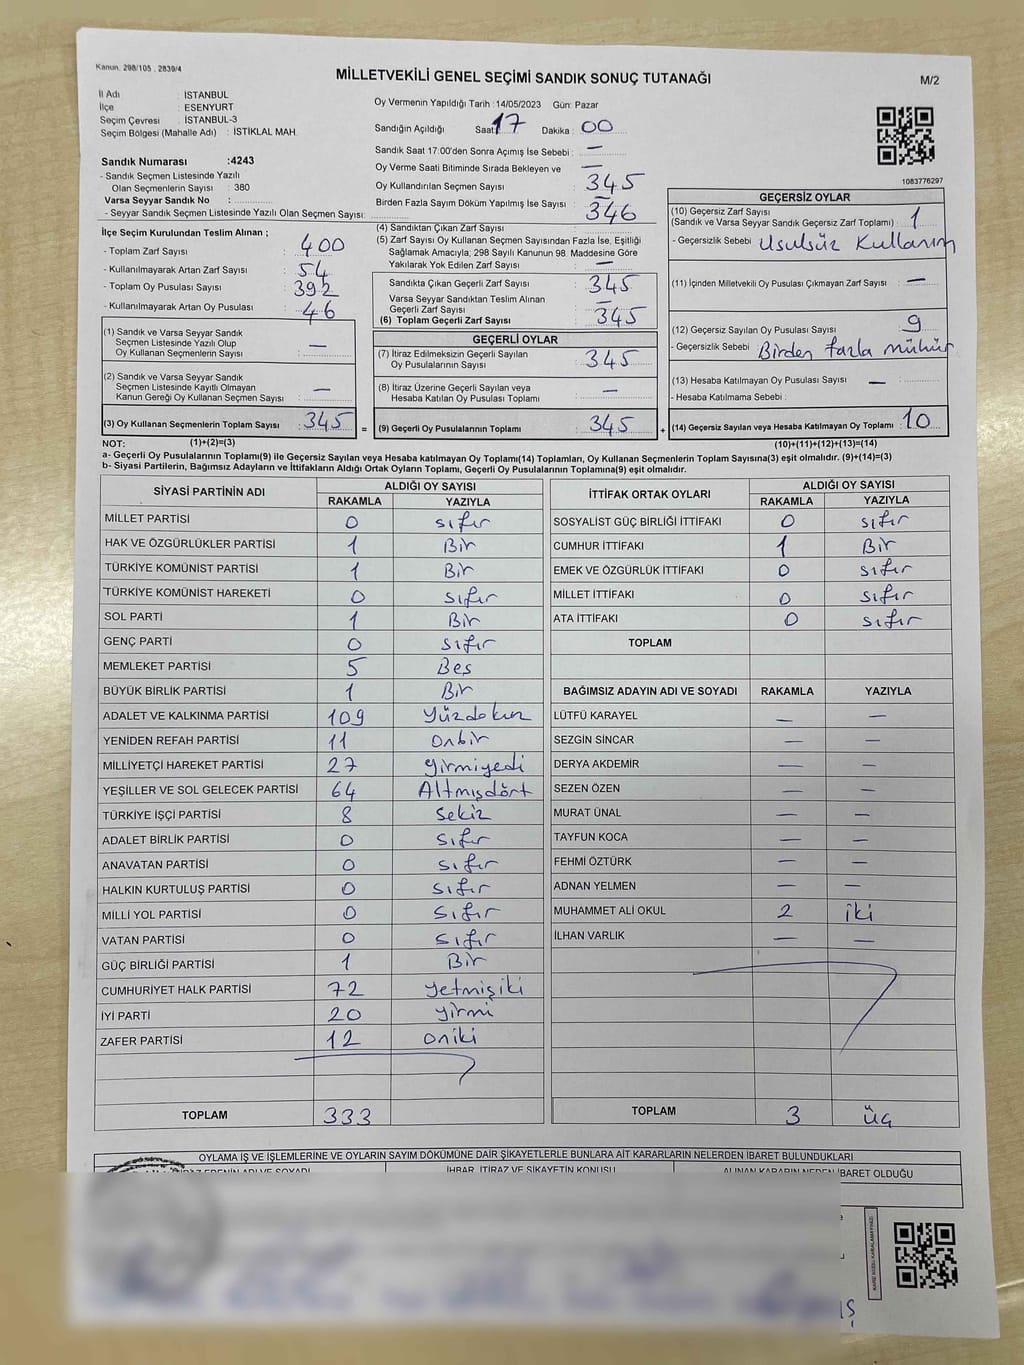 Kanun. 298/105 , 2839/4
MİLLETVEKİLİ GENEL SEÇİMİ SANDIK SONUÇ TUTANAĞI
M/2
İl Adı : İSTANBUL
İlçe : ESENYURT
Seçim Çevresi : İSTANBUL-3
Seçim Bölgesi (Mahalle Adı) : İSTİKLAL MAH.
Sandık Numarası :4243
- Sandık Seçmen Listesinde Yazılı
Olan Seçmenlerin Sayısı : 380
Varsa Seyyar Sandık No :
- Seyyar Sandık Seçmen Listesinde Yazılı Olan Seçmen Sayısı:
Oy Vermenin Yapıldığı Tarih : 14/05/2023 Gün: Pazar
Sandığın Açıldığı Saat: 17 Dakika : 00
Sandık Saat 17:00'den Sonra Açımış İse Sebebi : —
Oy Verme Saati Bitiminde Sırada Bekleyen ve : —
Oy Kullandırılan Seçmen Sayısı : 345
Birden Fazla Sayım Döküm Yapılmış İse Sayısı : —
1083776297
İlçe Seçim Kurulundan Teslim Alınan ;
- Toplam Zarf Sayısı : 400
- Kullanılmayarak Artan Zarf Sayısı : 54
- Toplam Oy Pusulası Sayısı : 392
- Kullanılmayarak Artan Oy Pusulası : 46
(1) Sandık ve Varsa Seyyar Sandık
Seçmen Listesinde Yazılı Olup
Oy Kullanan Seçmenlerin Sayısı : —
(2) Sandık ve Varsa Seyyar Sandık
Seçmen Listesinde Kayıtlı Olmayan
Kanun Gereği Oy Kullanan Seçmen Sayısı : —
(3) Oy Kullanan Seçmenlerin Toplam Sayısı : 345 =
(4) Sandıktan Çıkan Zarf Sayısı : 346
(5) Zarf Sayısı Oy Kullanan Seçmen Sayısından Fazla İse, Eşitliği
Sağlamak Amacıyla, 298 Sayılı Kanunun 98. Maddesine Göre
Yakılarak Yok Edilen Zarf Sayısı : —
Sandıkta Çıkan Geçerli Zarf Sayısı : 345
Varsa Seyyar Sandıktan Teslim Alınan
Geçerli Zarf Sayısı : —
(6) Toplam Geçerli Zarf Sayısı : 345
GEÇERLİ OYLAR
(7) İtiraz Edilmeksizin Geçerli Sayılan
Oy Pusulalarının Sayısı : 345
(8) İtiraz Üzerine Geçerli Sayılan veya
Hesaba Katılan Oy Pusulası Toplamı : —
(9) Geçerli Oy Pusulalarının Toplamı : 345 +
GEÇERSİZ OYLAR
(10) Geçersiz Zarf Sayısı
(Sandık ve Varsa Seyyar Sandık Geçersiz Zarf Toplamı) : 1
- Geçersizlik Sebebi : Usulsüz Kullanım
(11) İçinden Milletvekili Oy Pusulası Çıkmayan Zarf Sayısı : —
(12) Geçersiz Sayılan Oy Pusulası Sayısı : 9
- Geçersizlik Sebebi : Birden fazla mühür
(13) Hesaba Katılmayan Oy Pusulası Sayısı : —
- Hesaba Katılmama Sebebi :
(14) Geçersiz Sayılan veya Hesaba Katılmayan Oy Toplamı : 10
NOT: (1)+(2)=(3) (10)+(11)+(12)+(13)=(14)
a- Geçerli Oy Pusulalarının Toplamı(9) ile Geçersiz Sayılan veya Hesaba katılmayan Oy Toplamı(14) Toplamları, Oy Kullanan Seçmenlerin Toplam Sayısına(3) eşit olmalıdır. (9)+(14)=(3)
b- Siyasi Partilerin, Bağımsız Adayların ve İttifakların Aldığı Ortak Oyların Toplamı, Geçerli Oy Pusulalarının Toplamına(9) eşit olmalıdır.
SİYASİ PARTİNİN ADI ALDIĞI OY SAYISI
RAKAMLA YAZIYLA
MİLLET PARTİSİ 0 sıfır
HAK VE ÖZGÜRLÜKLER PARTİSİ 1 Bir
TÜRKİYE KOMÜNİST PARTİSİ 1 Bir
TÜRKİYE KOMÜNİST HAREKETİ 0 sıfır
SOL PARTİ 1 Bir
GENÇ PARTİ 0 sıfır
MEMLEKET PARTİSİ 5 Beş
BÜYÜK BİRLİK PARTİSİ 1 Bir
ADALET VE KALKINMA PARTİSİ 109 Yüzdokuz
YENİDEN REFAH PARTİSİ 11 Onbir
MİLLİYETÇİ HAREKET PARTİSİ 27 yirmiyedi
YEŞİLLER VE SOL GELECEK PARTİSİ 64 Altmışdört
TÜRKİYE İŞÇİ PARTİSİ 8 Sekiz
ADALET BİRLİK PARTİSİ 0 sıfır
ANAVATAN PARTİSİ 0 sıfır
HALKIN KURTULUŞ PARTİSİ 0 sıfır
MİLLİ YOL PARTİSİ 0 sıfır
VATAN PARTİSİ 0 sıfır
GÜÇ BİRLİĞİ PARTİSİ 1 Bir
CUMHURİYET HALK PARTİSİ 72 yetmişiki
İYİ PARTİ 20 yirmi
ZAFER PARTİSİ 12 oniki
TOPLAM 333
İTTİFAK ORTAK OYLARI ALDIĞI OY SAYISI
RAKAMLA YAZIYLA
SOSYALİST GÜÇ BİRLİĞİ İTTİFAKI 0 sıfır
CUMHUR İTTİFAKI 1 Bir
EMEK VE ÖZGÜRLÜK İTTİFAKI 0 sıfır
MİLLET İTTİFAKI 0 sıfır
ATA İTTİFAKI 0 sıfır
TOPLAM
BAĞIMSIZ ADAYIN ADI VE SOYADI RAKAMLA YAZIYLA
LÜTFÜ KARAYEL — —
SEZGİN SİNCAR — —
DERYA AKDEMİR — —
SEZEN ÖZEN — —
MURAT ÜNAL — —
TAYFUN KOCA — —
FEHMİ ÖZTÜRK — —
ADNAN YELMEN — —
MUHAMMET ALİ OKUL 2 iki
İLHAN VARLIK — —
TOPLAM 3 üç
OYLAMA İŞ VE İŞLEMLERİNE VE OYLARIN SAYIM DÖKÜMÜNE DAİR ŞİKAYETLERLE BUNLARA AİT KARARLARIN NELERDEN İBARET BULUNDUKLARI
İHBAR, İTİRAZ VE ŞİKAYETİN KONUSU ALINAN KARARIN NEDEN İBARET OLDUĞU